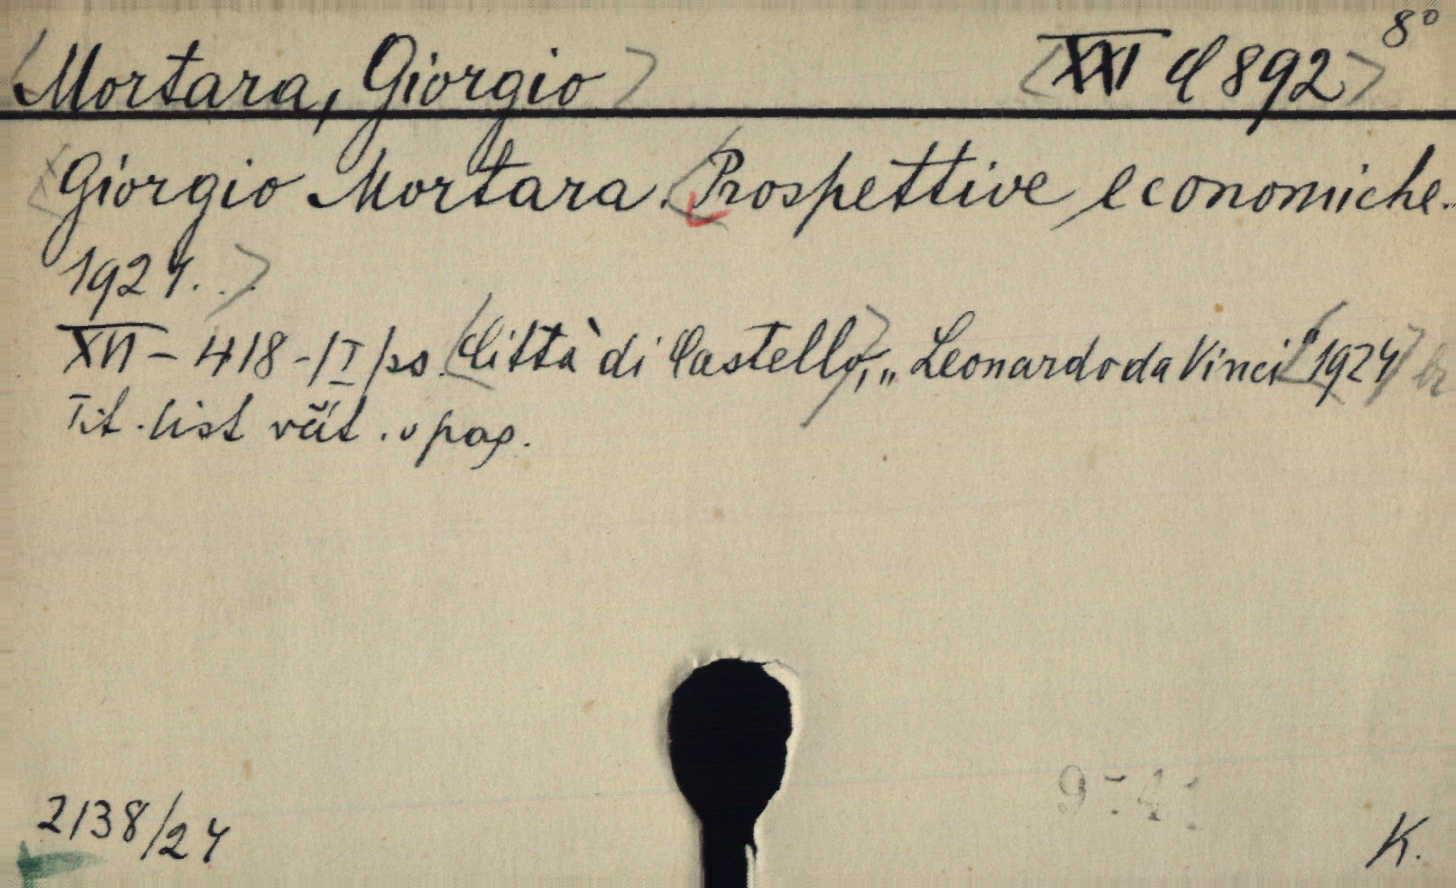 Mortara, Giorgio XXI d 892 8°
Giorgio Mortara. Prospettive economiche.
1924.
XVI - 418 - /I/ ss. Città di Castello, „Leonardo da Vinci" 1924
Tit. list váz. v pag.
2138/24
K.